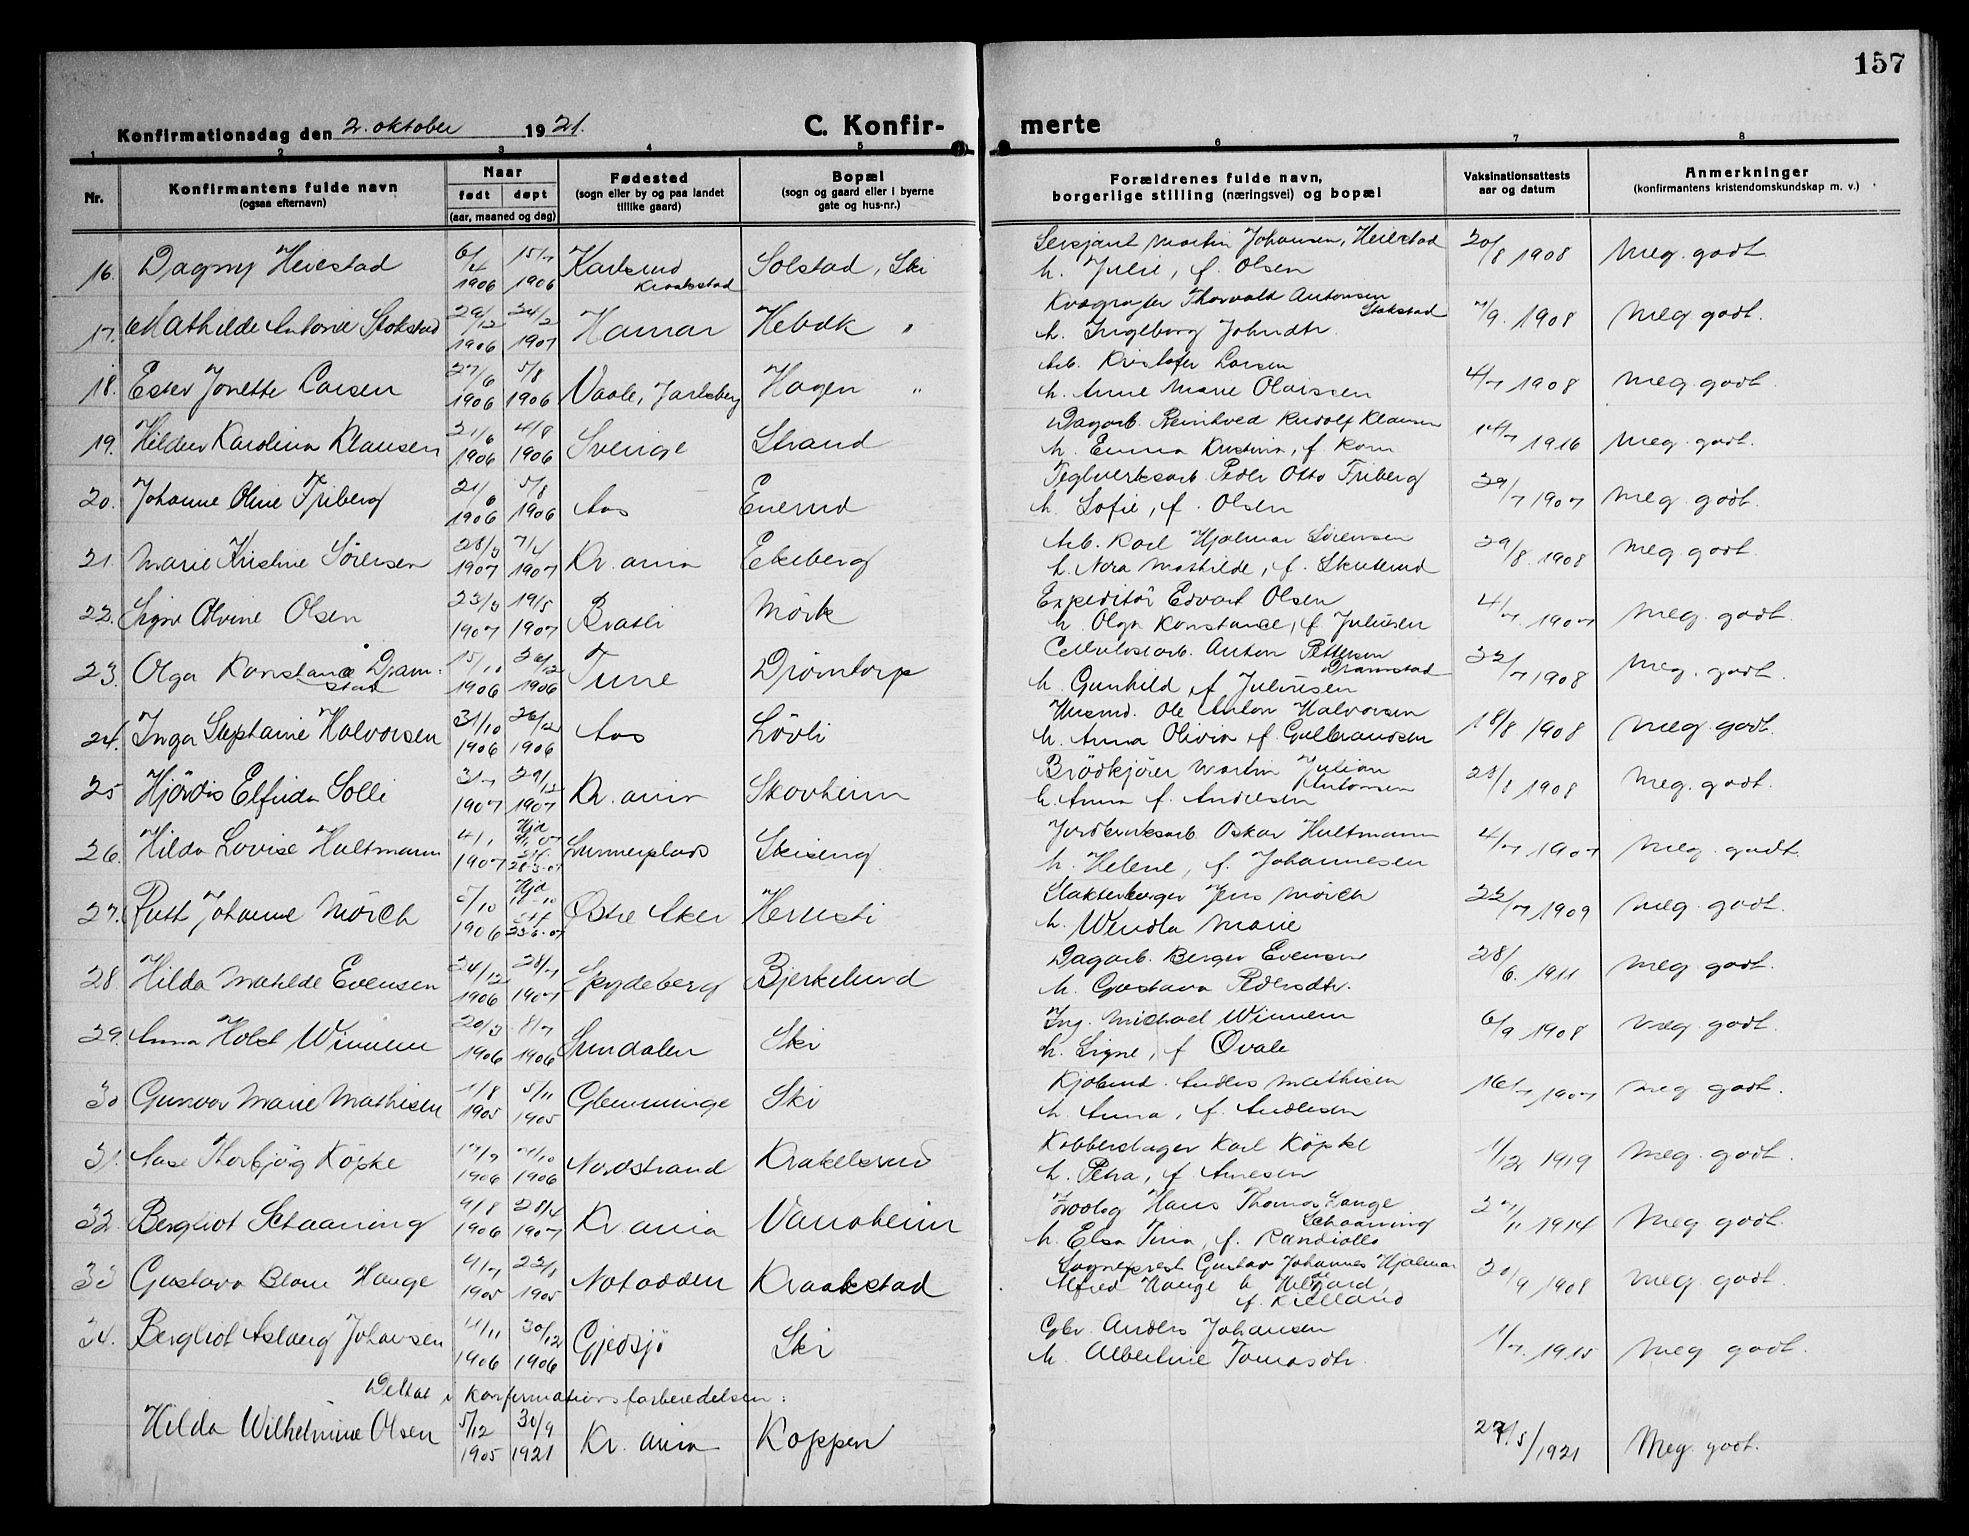 157
Konfirmationsdag den 2. oktober 1921.
C. Konfir-
merte
1 2 3 4 5 6 7 8
Nr.
Konfirmantens fulde navn
(ogsaa efternavn)
Naar
født døpt
(aar, maaned og dag)
Fødested
(sogn eller by og paa landet
tillike gaard)
Bopæl
(sogn og gaard eller i byerne
gate og hus-nr.)
Forældrenes fulde navn,
borgerlige stilling (næringsvei) og bopæl
Vaksinationsattests
aar og datum
Anmerkninger
(konfirmantens kristendomskundskap m. v.)
16. Dagny Heiestad 6/4 1906 15/7 1906 Karlsrud Kraakstad Solstad, Ski
Sersjant Martin Johansen, Heiestad 20/8 1908 Meg. godt
h. Julie, f. Olsen
17. Mathilde Antonie Stokstad 29/12 1906 24/2 1907 Hamar Hebæk "
Thorvald Antonsen Stokstad 7/9. 1908 Meg godt.
h. Ingeborg Johnsdtr.
18. Ester Jonette Larsen 27/6 1906 5/8 1906 Vaale, Jarlsberg Hagen "
Arb. Kristofer Larsen 4/7 1908 Meg godt.
h. Anne Marie Olaissen
19. Karolina Klausen 21/6 1906 4/8 1906 Sverige Strand
Dagarb. Rudolf Klausen 1916 Meg. godt.
h. Emma Kristina, f. Korn
20. Johanne Oline Friberg 21/6 1906 5/8 1906 Aas Enerud
Teglverksarb. Peder Otto Friberg 29/7 1907 Meg. godt.
h. Sofie, f. Olsen
21. Marie Kristine Sörensen 28/3 1907 7/4 1907 Kr.ania Ekeberg
Arb. Karl Hjalmar Sörensen 29/8. 1908 Meg godt.
h. Nora Mathilde, f. Skuterud
22. Signe Olvine Olsen 23/3 1907 19/5 1907 Braatli Mörk
Expeditör Edvart Olsen 4/7 1907 Meg. godt.
h. Olga Konstance, f. Juliusen
23. Olga Konstance Dramstad 15/10 1906 26/12 1906 Tune Drömtorp
Cellulosearb. Anton Pettersen Dramstad 22/7 1908 Meg. godt.
h. Gunhild, f. Juliusen
24. Inga Stephanie Halvorsen 31/10 1906 26/12 1906 Aas Lövli
Husmd. Ole Anton Halvorsen 18/8 1908 Meg. godt.
h. Anna Olivia, f. Gulbrandsen
25 Hjördis Elfrida Solli 3/7 1907 29/12 1907 Kr.ania Skovheim
Brödkjörer Martin Julian Antonsen 28/8 1908 Meg. godt.
h. Anna f. Andresen
26. Hilda Lovise Hultmann 4/1 1907 Hjd 07 stf. 28-3-07 Skiseng
Jordbruksarb. Oskar Hultmann 4/7 1907 Meg. godt.
h. Helene, f. Johannesen
27. Rutt Johanne Mörch 5/10 1906 Hjd stf 23-6-07 Östre Aker
Jens Mörch 22/7 1909 Meg. godt.
h. Wendla Marie
28. Hilda Matilde Evensen 24/12 1906 28/7 1907 Spydeberg Bjerkelund
Dagarb. Berger Evensen 28/6. 1911 Meg. godt.
h. Gustava Pedersdtr.
29. Anna Holst Winnem 20/3 1906 8/7 1906 Sundalen Ski
Ing. Michael Winnem 6/9 1908 Meg godt.
h. Signe, f Qvale
30 Gunvor Marie Mathisen 1/8 1905 5/11 1905 Glemminge Ski
Kjöbmd. Anders Mathisen 16/7 1907 Meg godt.
h. Anna, f. Andersen
31. Aase Thorbjörg Köpke 17/9 1906 1906 Nordstrand Krakelsrud
Kobberslager Karl Köpke 1/12 1919 Meg. godt.
h. Petra, f Arnesen
32. Bergliot Schaaning 9/8 1906 28/4 1907 Kr.ania Vanoheim
Zoolog Hans Thomas Lange Schaaning 27/11 1914 Meg. godt.
h. Elsa Tina, f. Randiallo
33 Gustava Blom Hauge 9/7 1905 23/8 1905 Notodden Kraakstad
Sogneprest Gustav Johannes Hjalmar 30/9 1908 Meg godt.
Alfred Hauge h Hildegard,
f. Kielland
34. Bergliot Aslaug Johansen 4/11 1906 30/12 1906 Gjedsjö Ski
Gbr. Anders Johansen 1/7. 1915 Meg godt.
h. Albertine Tomasdtr.
Deltat i konfirmationsforberedelsen:
Hilda Wilhelmine Olsen 5/12 1905 30/9 1921 Kr. ania Koppen
27/5/1921 Meg. godt.